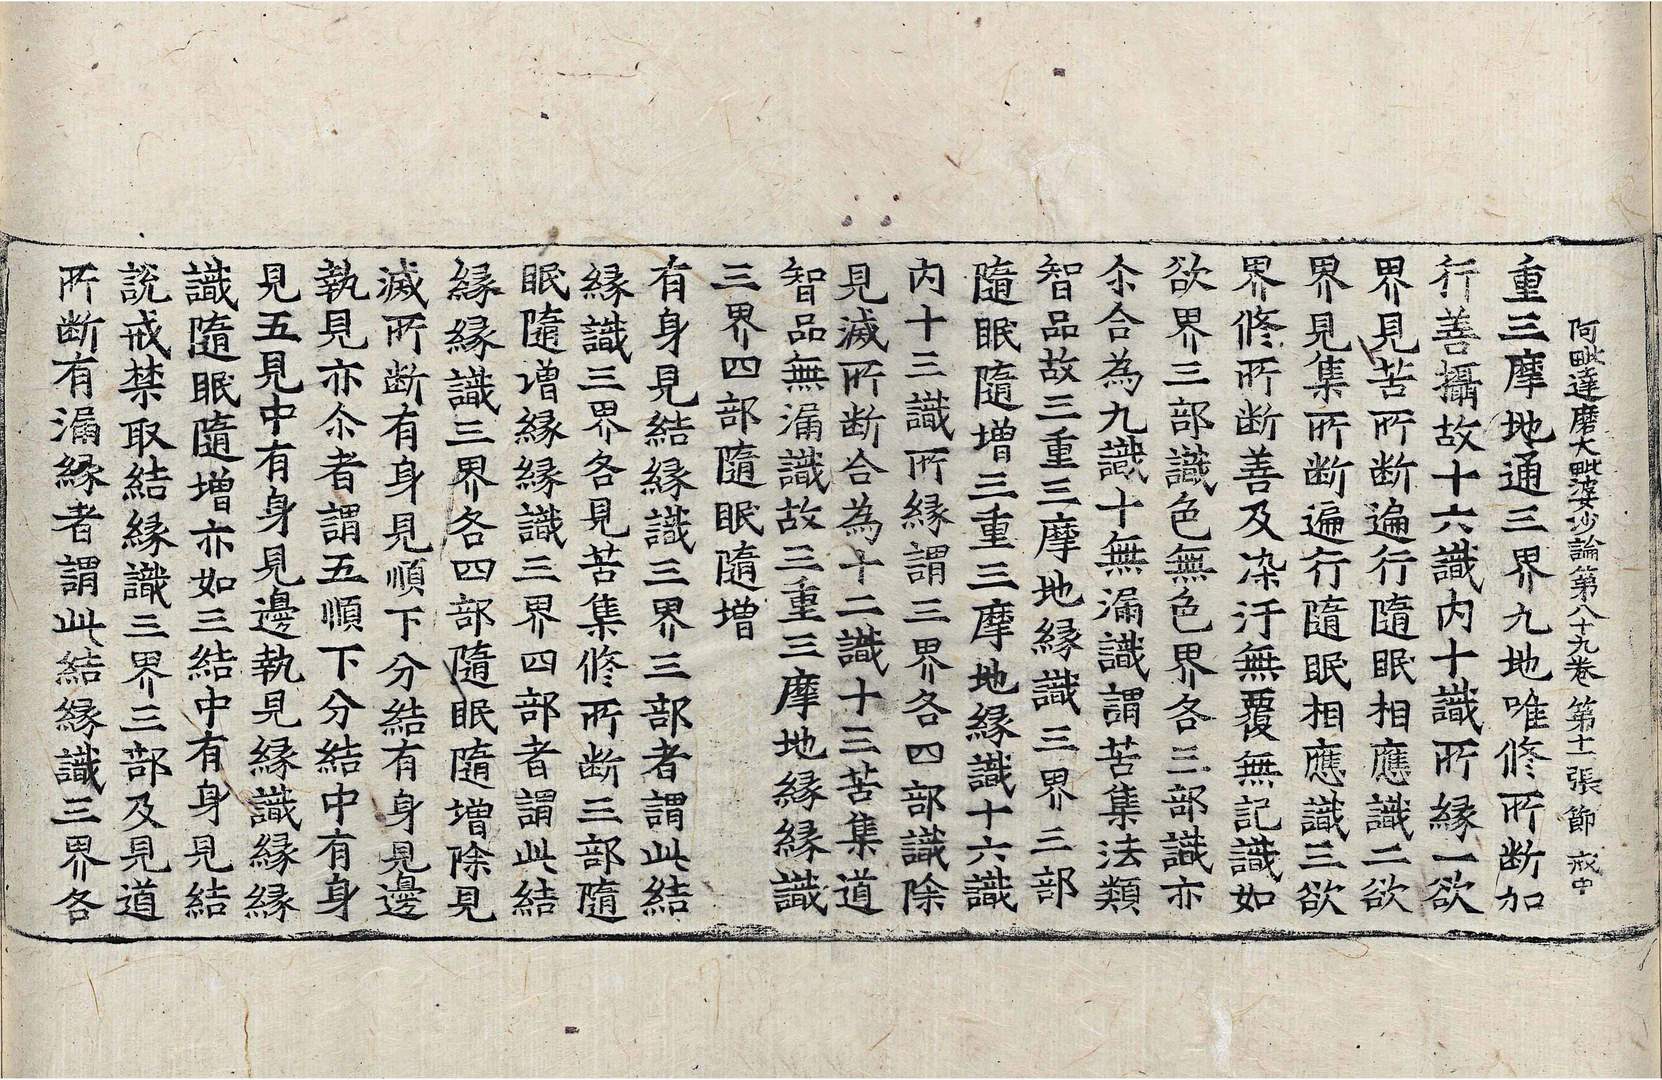 阿毗達磨大毗婆沙論第八十九卷 第十一張 節 戒中
重三摩地通三界九地唯修所断加
行善攝故十六識内十識所縁一欲
界見苦所断遍行隨眠相應識二欲
界見集所断遍行隨眠相應識三欲
界修所断善及染汙無覆無記識如
欲界三部識色無色界各三部識亦
尒合為九識十無漏識謂苦集法類
智品故三重三摩地縁識三界三部
隨眠隨增三重三摩地縁識十六識
内十三識所縁謂三界各四部識除
見滅所断合為十二識十三苦集道
智品無漏識故三重三摩地縁縁識
三界四部隨眠隨增
有身見結縁識三界三部者謂此結
縁識三界各見苦集修所断三部隨
眠隨增縁縁識三界四部者謂此結
縁縁識三界各四部隨眠隨增除見
滅所断有身見順下分結有身見邊
執見亦尒者謂五順下分結中有身
見五見中有身見邊執見縁識縁縁
識隨眠隨增亦如三結中有身見結
說戒禁取結縁識三界三部及見道
所断有漏縁者謂此結縁識三界各